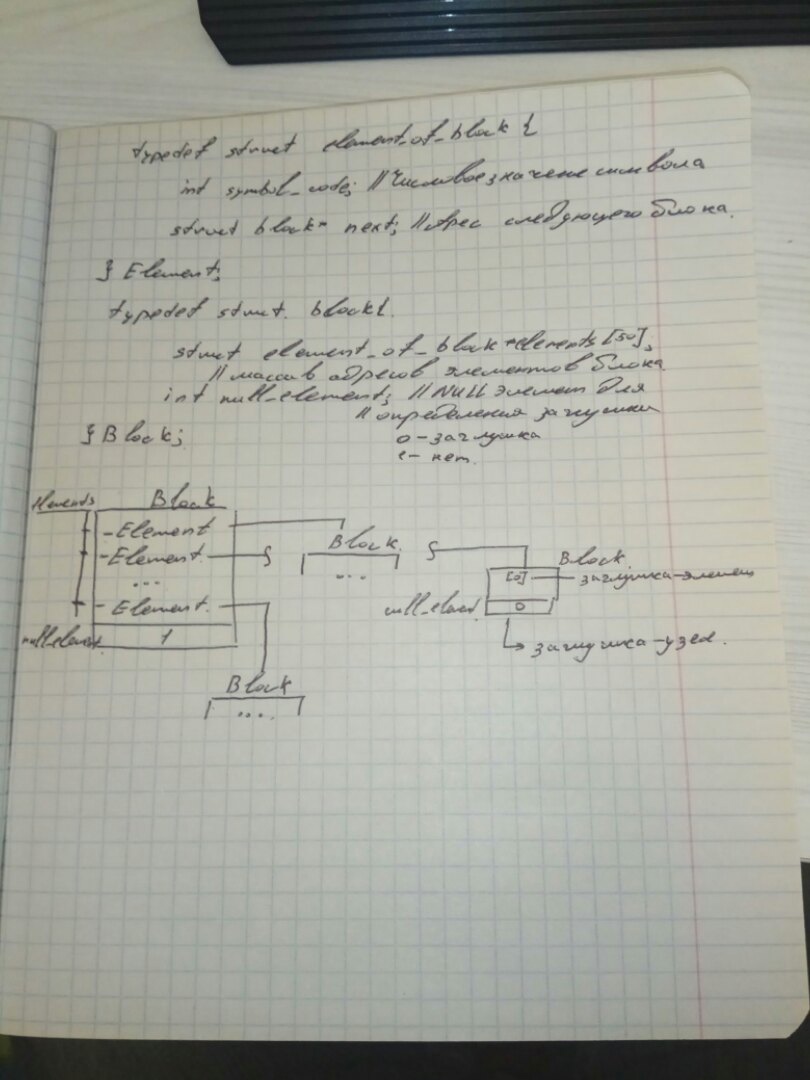 typedef struct element_of_block {
int symbol_code; // Числовое значение символа
struct block* next; // Адрес следующего блока.
} Element;
typedef struct block {
struct element_of_block *elements [50];
// массив адресов элементов блока
int null_element; // NULL элемент для
// определения заглушки
0 - заглушка
1 - нет.
} Block;
elements Block
- Element
- Element Block Block
... ... [0] заглушка-элемент
- Element null_element 0
null_element 1 заглушка-узел.
Block
....